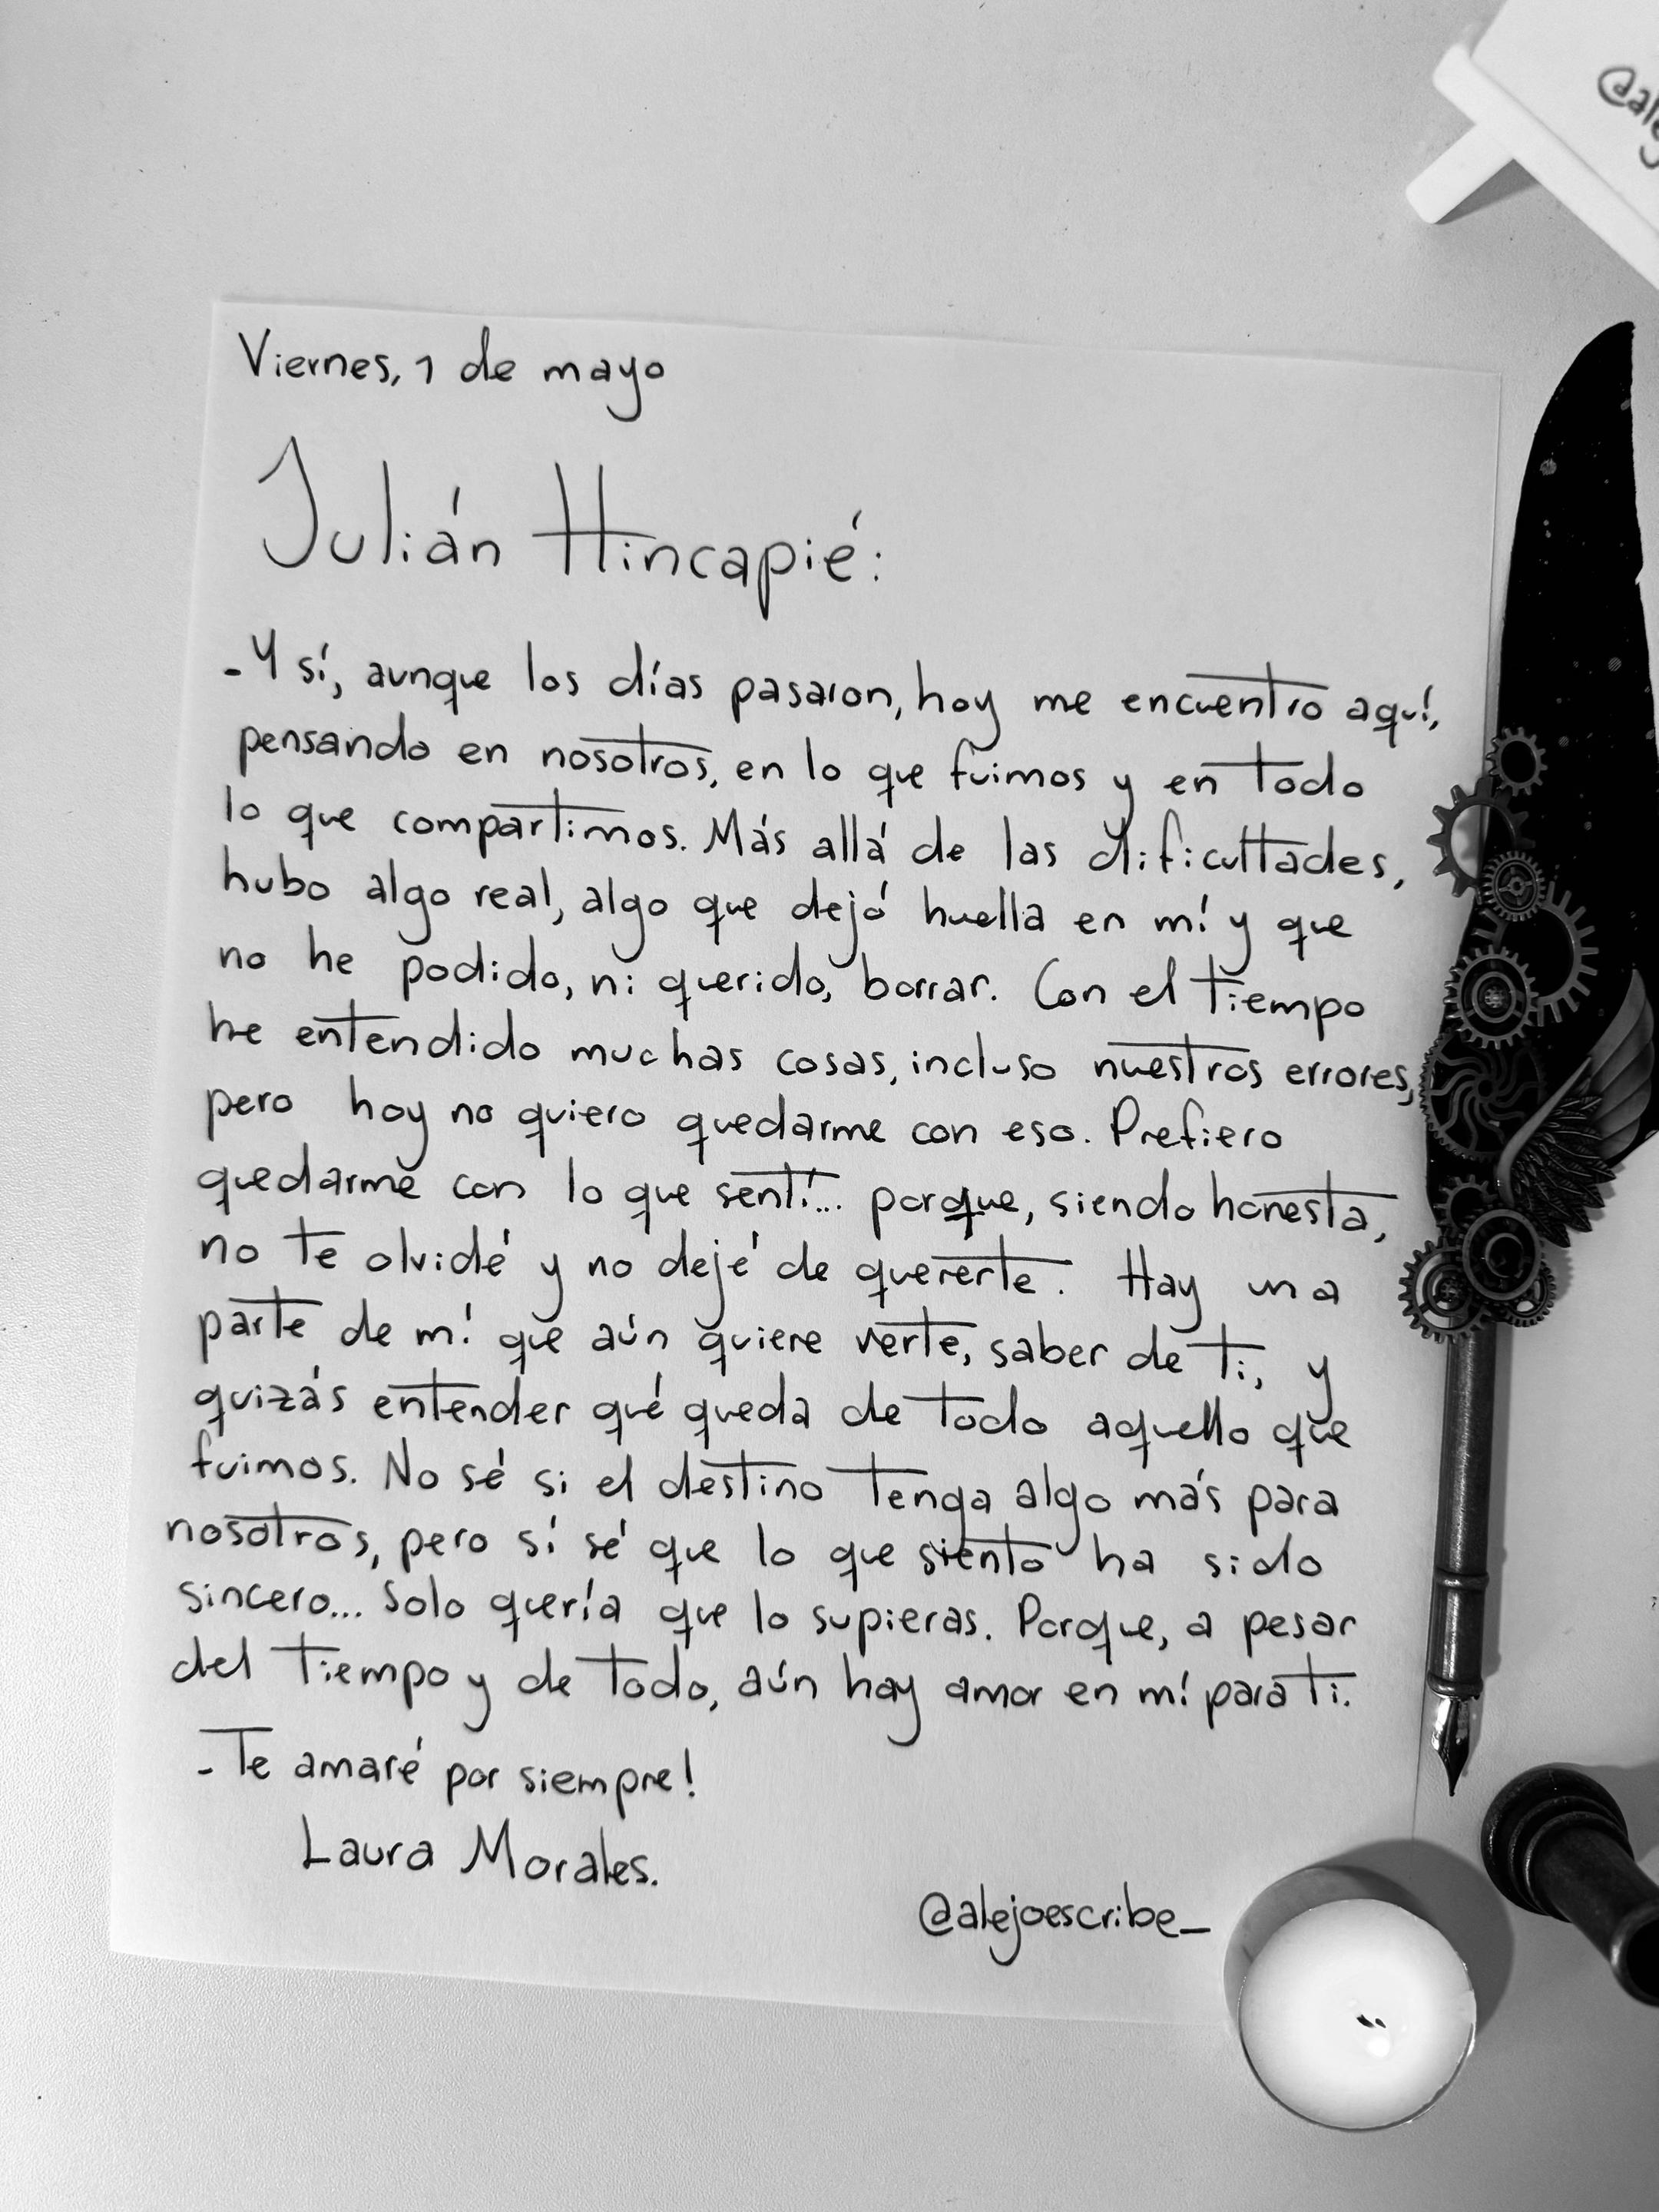 @ale
Viernes, 1 de mayo
Julián Hincapié:
-Y sí, aunque los días pasaron, hoy me encuentro aquí,
pensando en nosotros, en lo que fuimos y en todo
lo que compartimos. Más allá de las dificultades,
hubo algo real, algo que dejó huella en mí y que
no he podido, ni querido, borrar. Con el tiempo
he entendido muchas cosas, incluso nuestros errores,
pero hoy no quiero quedarme con eso. Prefiero
quedarme con lo que sentí... porque, siendo honesta,
no te olvidé y no dejé de quererte. Hay una
parte de mí que aún quiere verte, saber de ti, y
quizás entender qué queda de todo aquello que
fuimos. No sé si el destino tenga algo más para
nosotros, pero sí sé que lo que siento ha sido
sincero... Solo quería que lo supieras. Porque, a pesar
del tiempo y de todo, aún hay amor en mí para ti.
-Te amaré por siempre!
Laura Morales.
@alejoescribe_